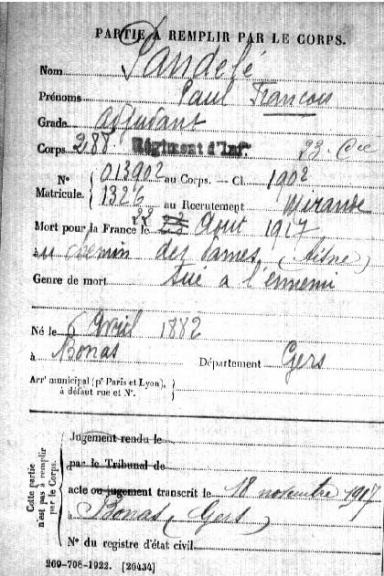 PARTIE À REMPLIR PAR LE CORPS.
Nom Pandelé
Prénoms Paul François
Grade adjudant
Corps 288 Régiment d'Inf. 23. Cie
N° 013902 au Corps. — Cl. 1902
Matricule. 1326 au Recrutement Mirande
Mort pour la France le Août 1917
au chemin des Dames (Aisne)
Genre de mort tué à l'ennemi
Né le 6 Avril 1882
à Bonas Département Gers
Arr^t municipal (p^r Paris et Lyon),
à défaut rue et N°.
Cette partie
n'est pas à remplir
par le Corps.
Jugement rendu le
par le Tribunal de
acte ou jugement transcrit le 18 novembre 1917
Bonas (Gers)
N° du registre d'état civil
269-708-1922. [26434]